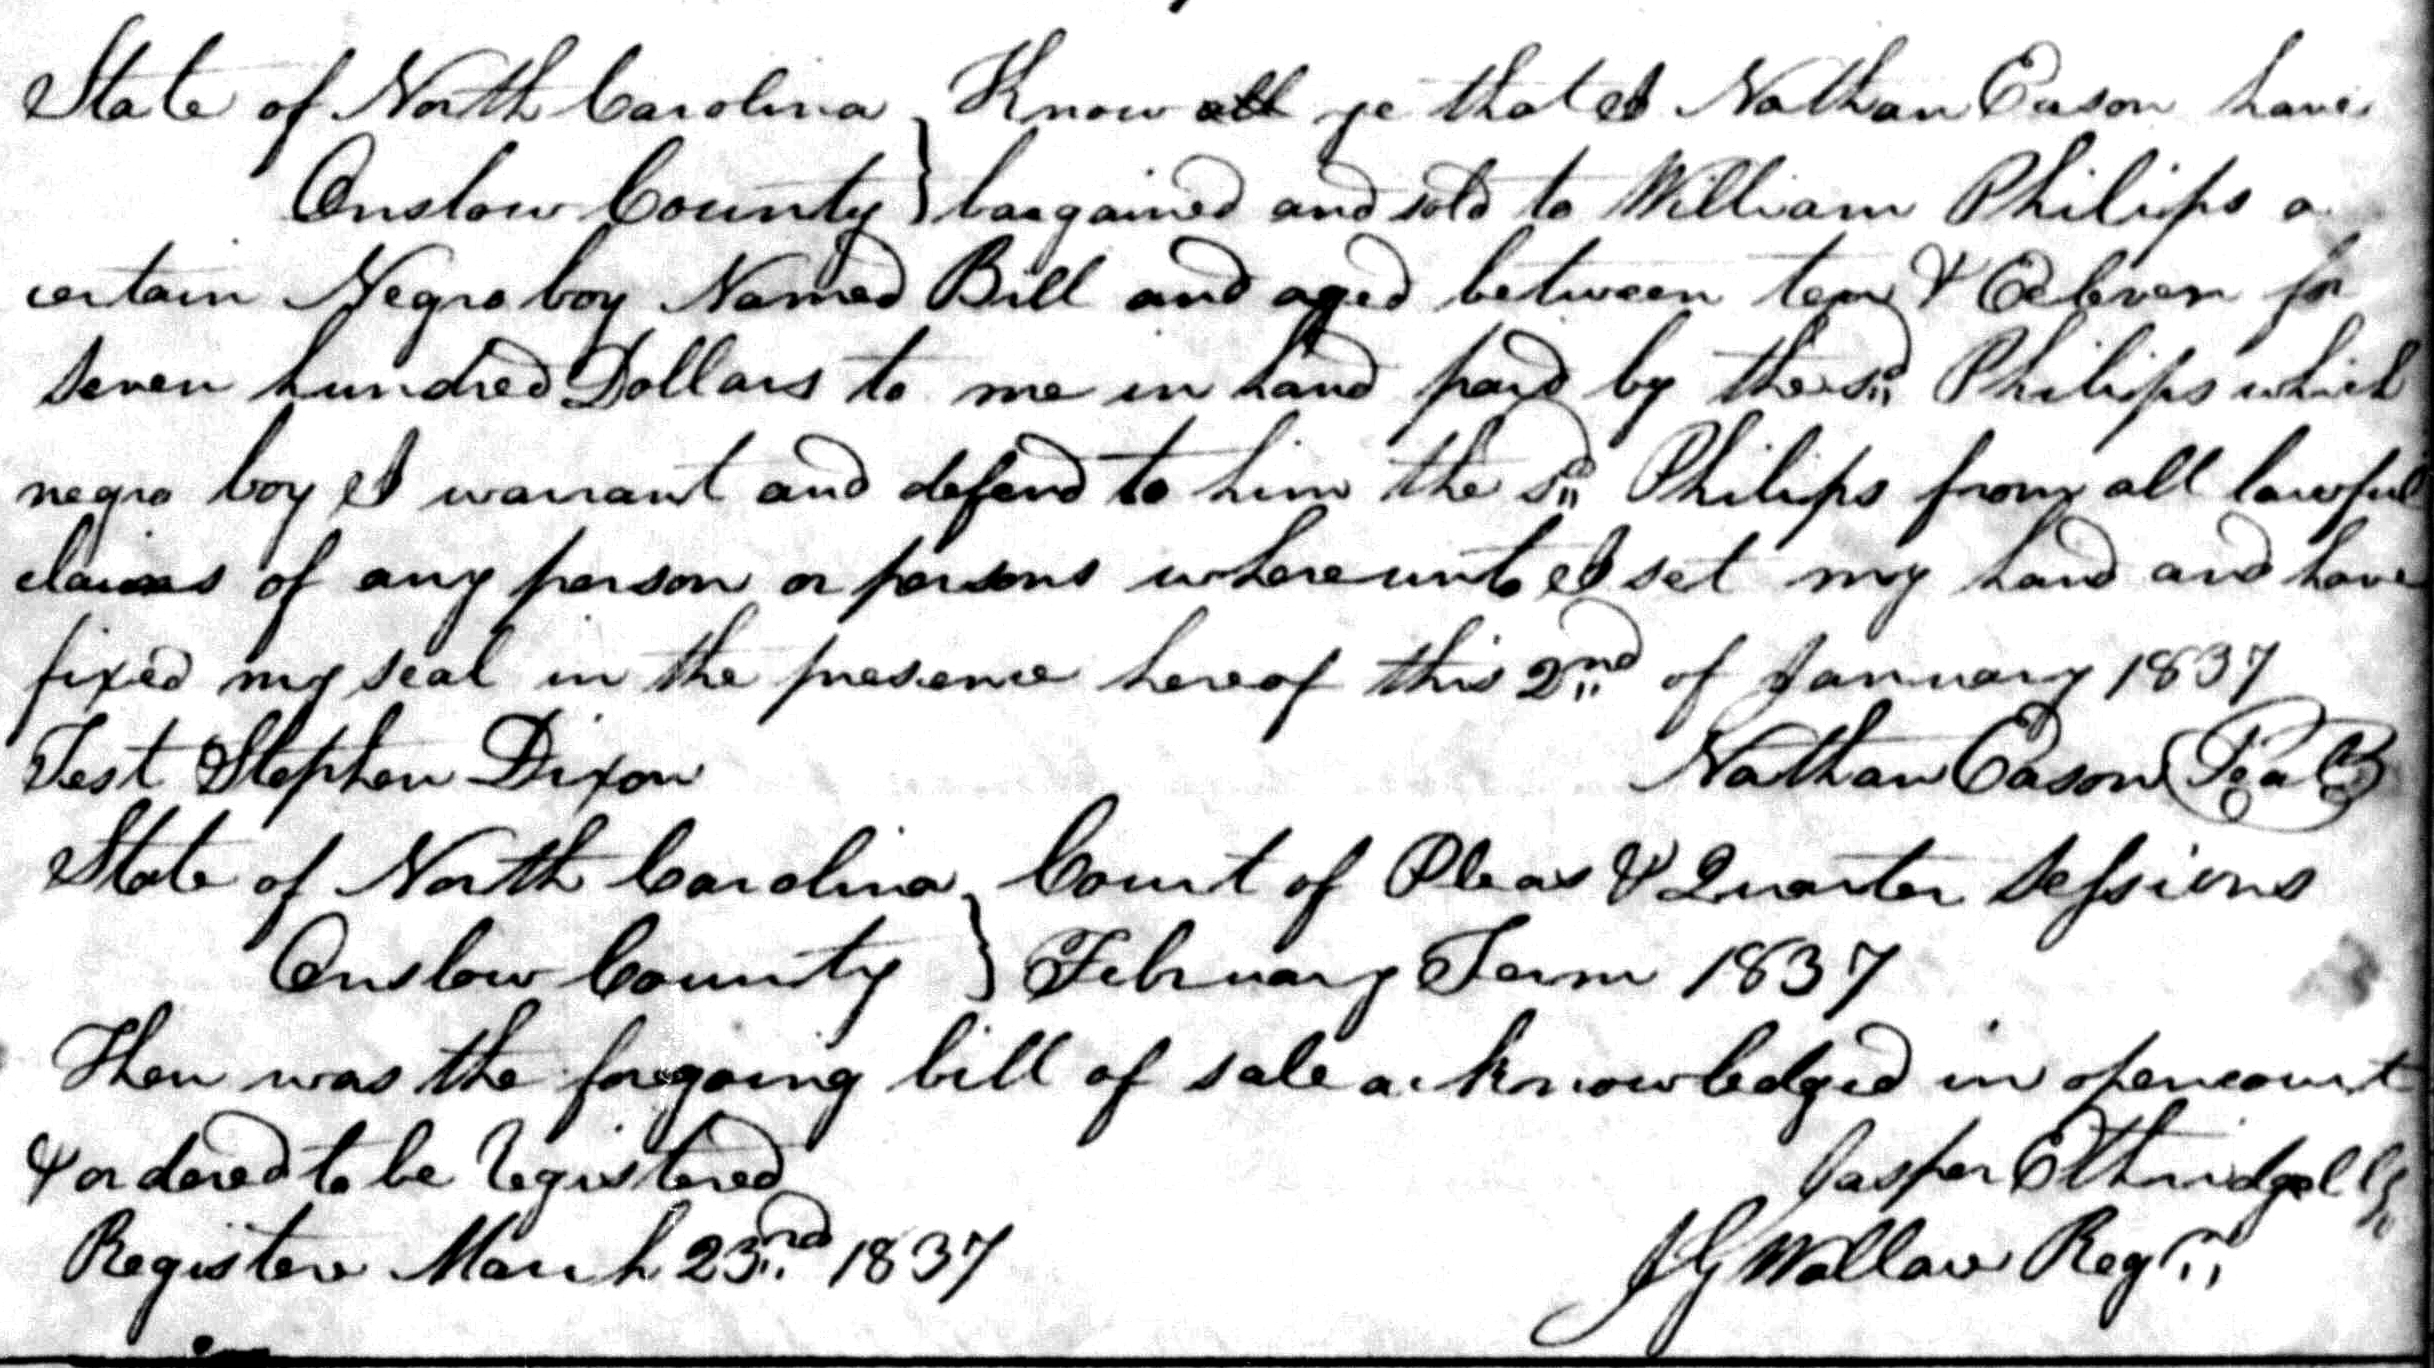 State of North Carolina } Know all ye that I Nathan Eason have
Onslow County } bargained and sold to William Philips a
certain Negro boy Named Bill and aged between ten & Eeleven for
seven hundred Dollars to me in hand paid by the sd Philips which
negro boy I warrant and defend to him the sd Philips from all lawful
claims of any person or persons whereunto I set my hand and have
fixed my seal in the presence hereof this 2nd of January 1837
Test Stephen Dixon Nathan Eason Seal
State of North Carolina } Court of Pleas & Quarter Sessions
Onslow County } February Term 1837
Then was the foregoing bill of sale acknowledged in open court
& ordered to be registered Jasper Ethridge Clk
Register March 23rd 1837 J G Wallace Regr